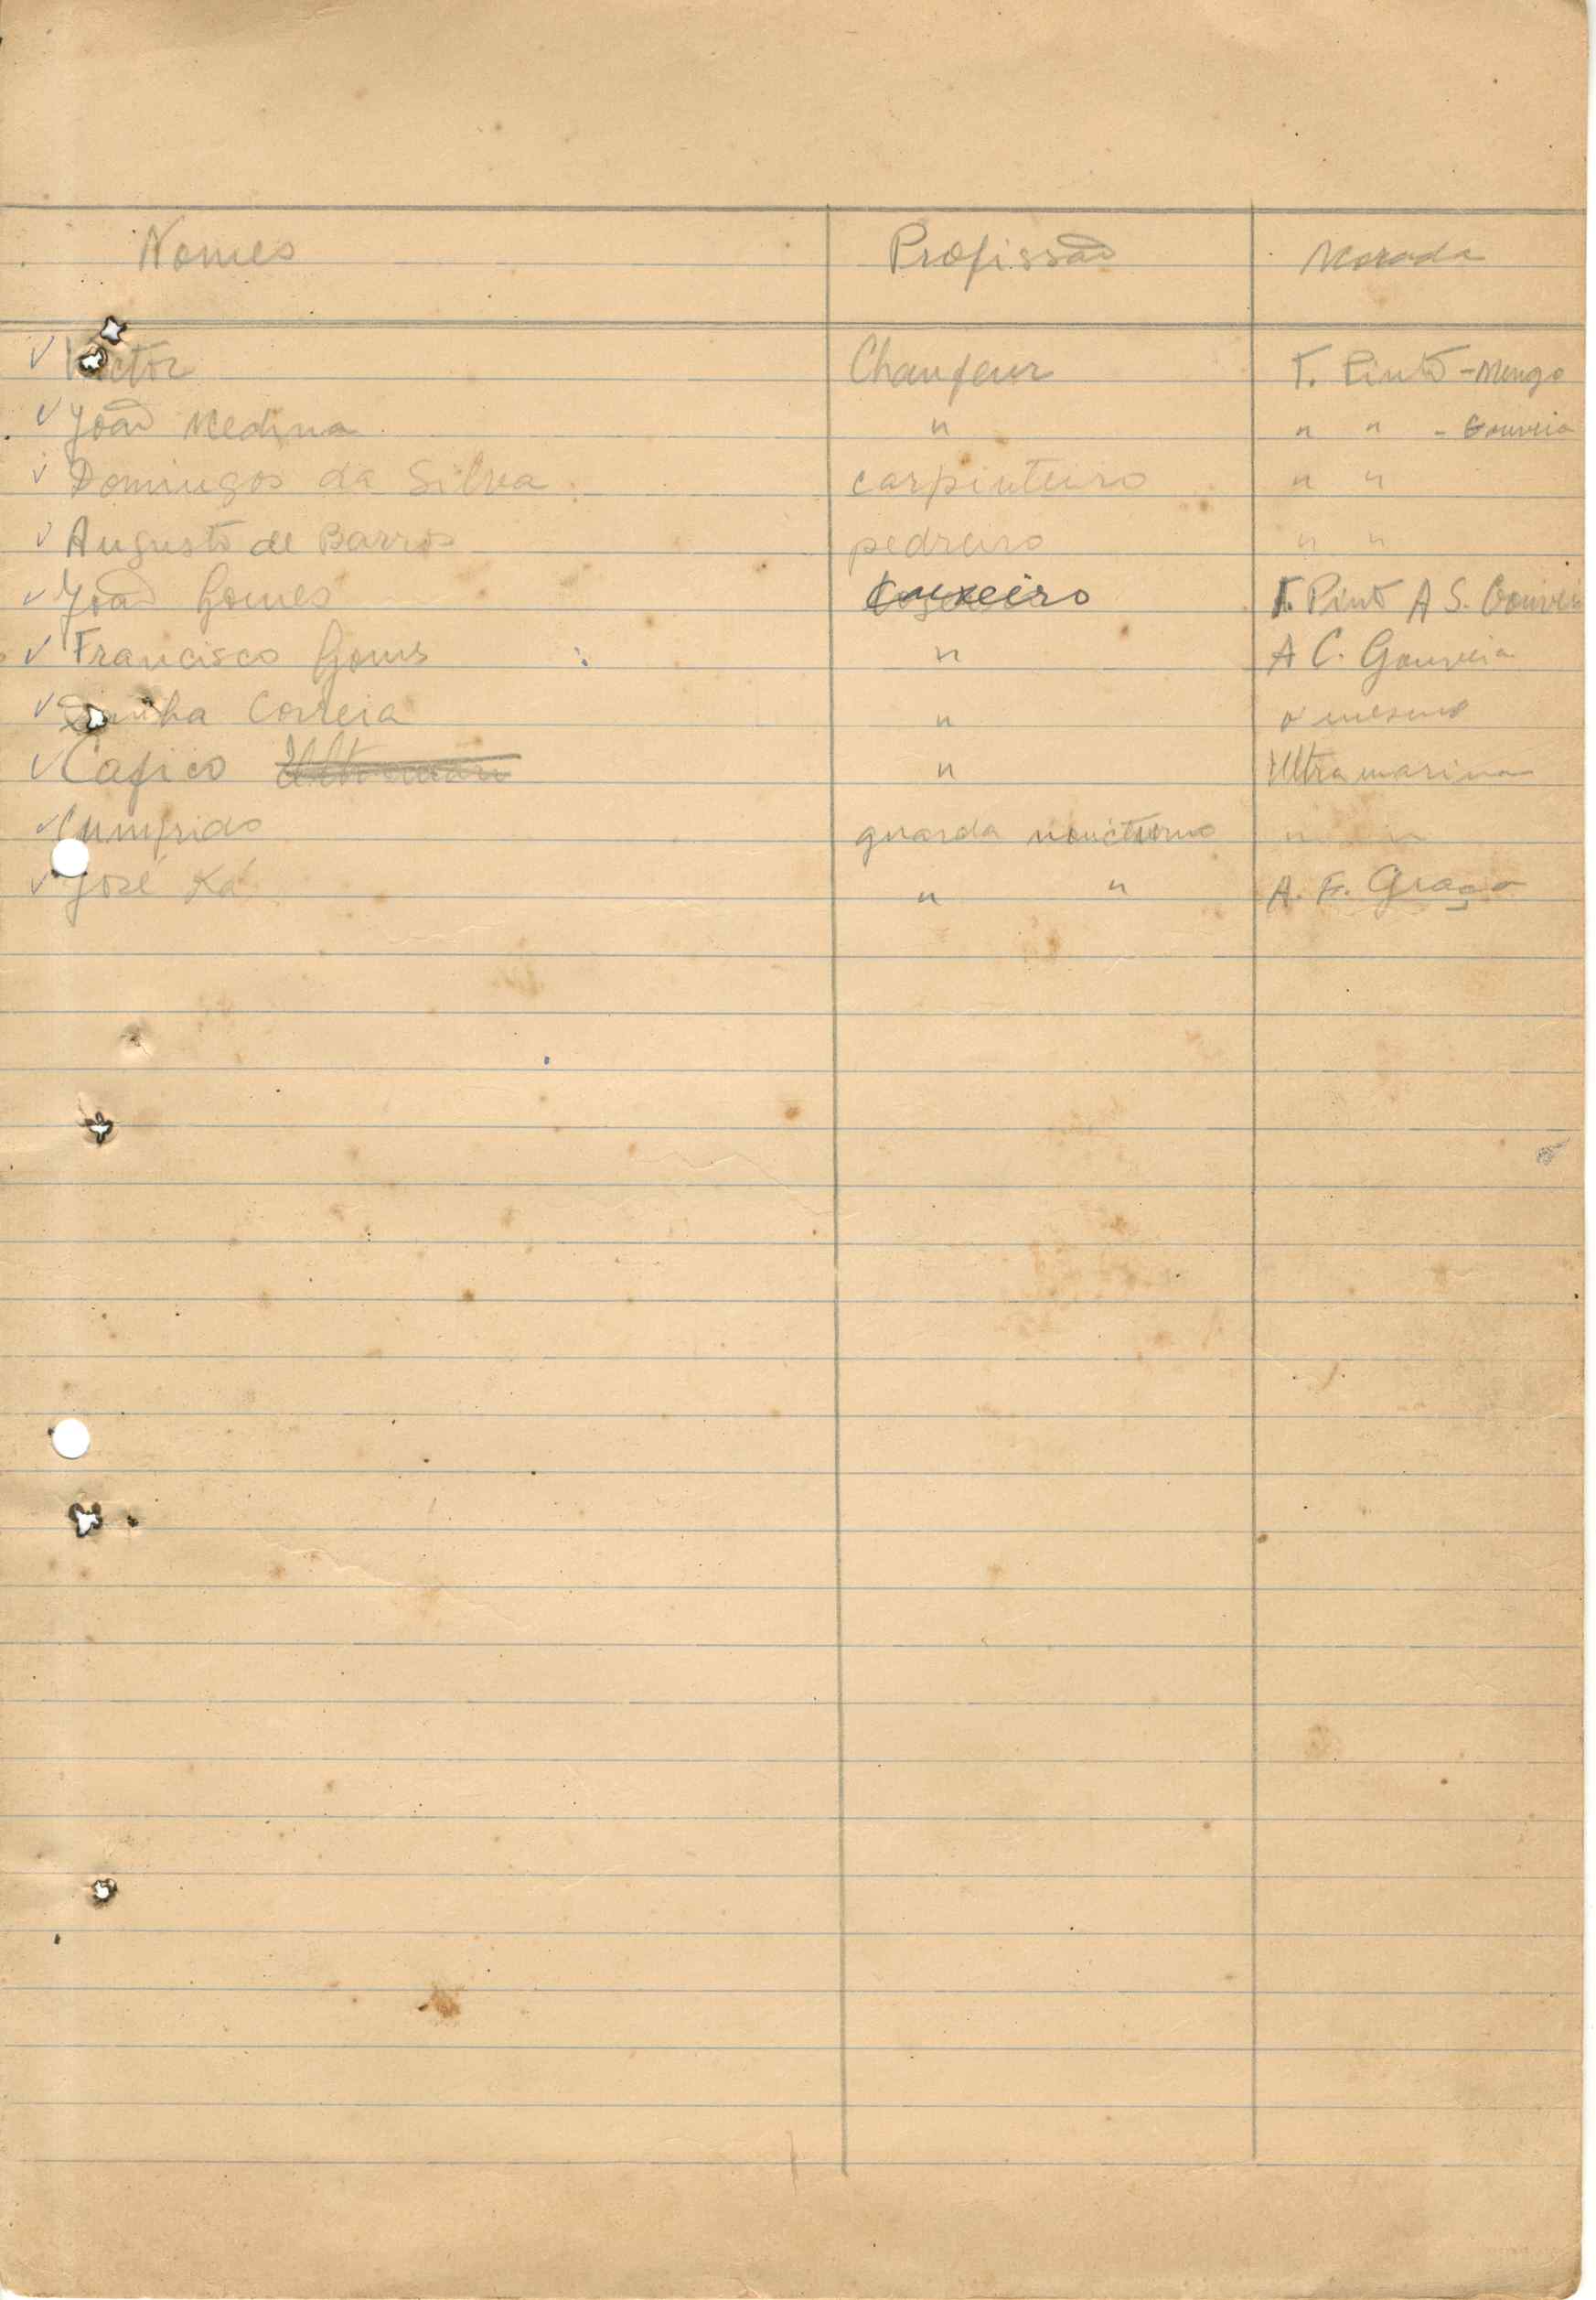 Nomes Profissão Morada
✓ Victor Chaufeur T. Pinto - Mengo
✓ João Medina " " " - Gouveia
✓ Domingos da Silva carpinteiro " "
✓ Augusto de Barros pedreiro " "
✓ João Gomes T. Pinto A S. Gouveia
✓ Francisco Goms " A C. Gouveia
✓ Correia " o mesmo
✓ Cafico " Ultramarina
✓ Cumprido guarda noucturno " "
✓ José Ká " " A. F. Graça